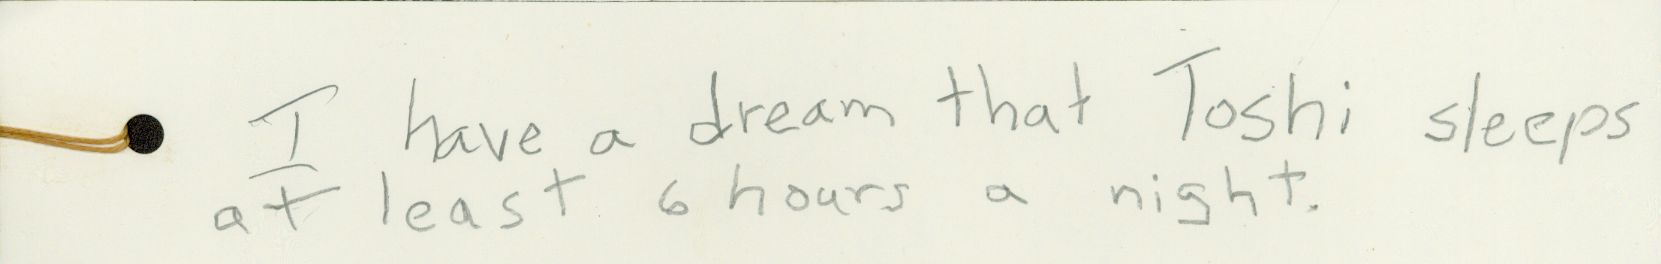 I have a dream that Toshi sleeps
at least 6 hours a night.